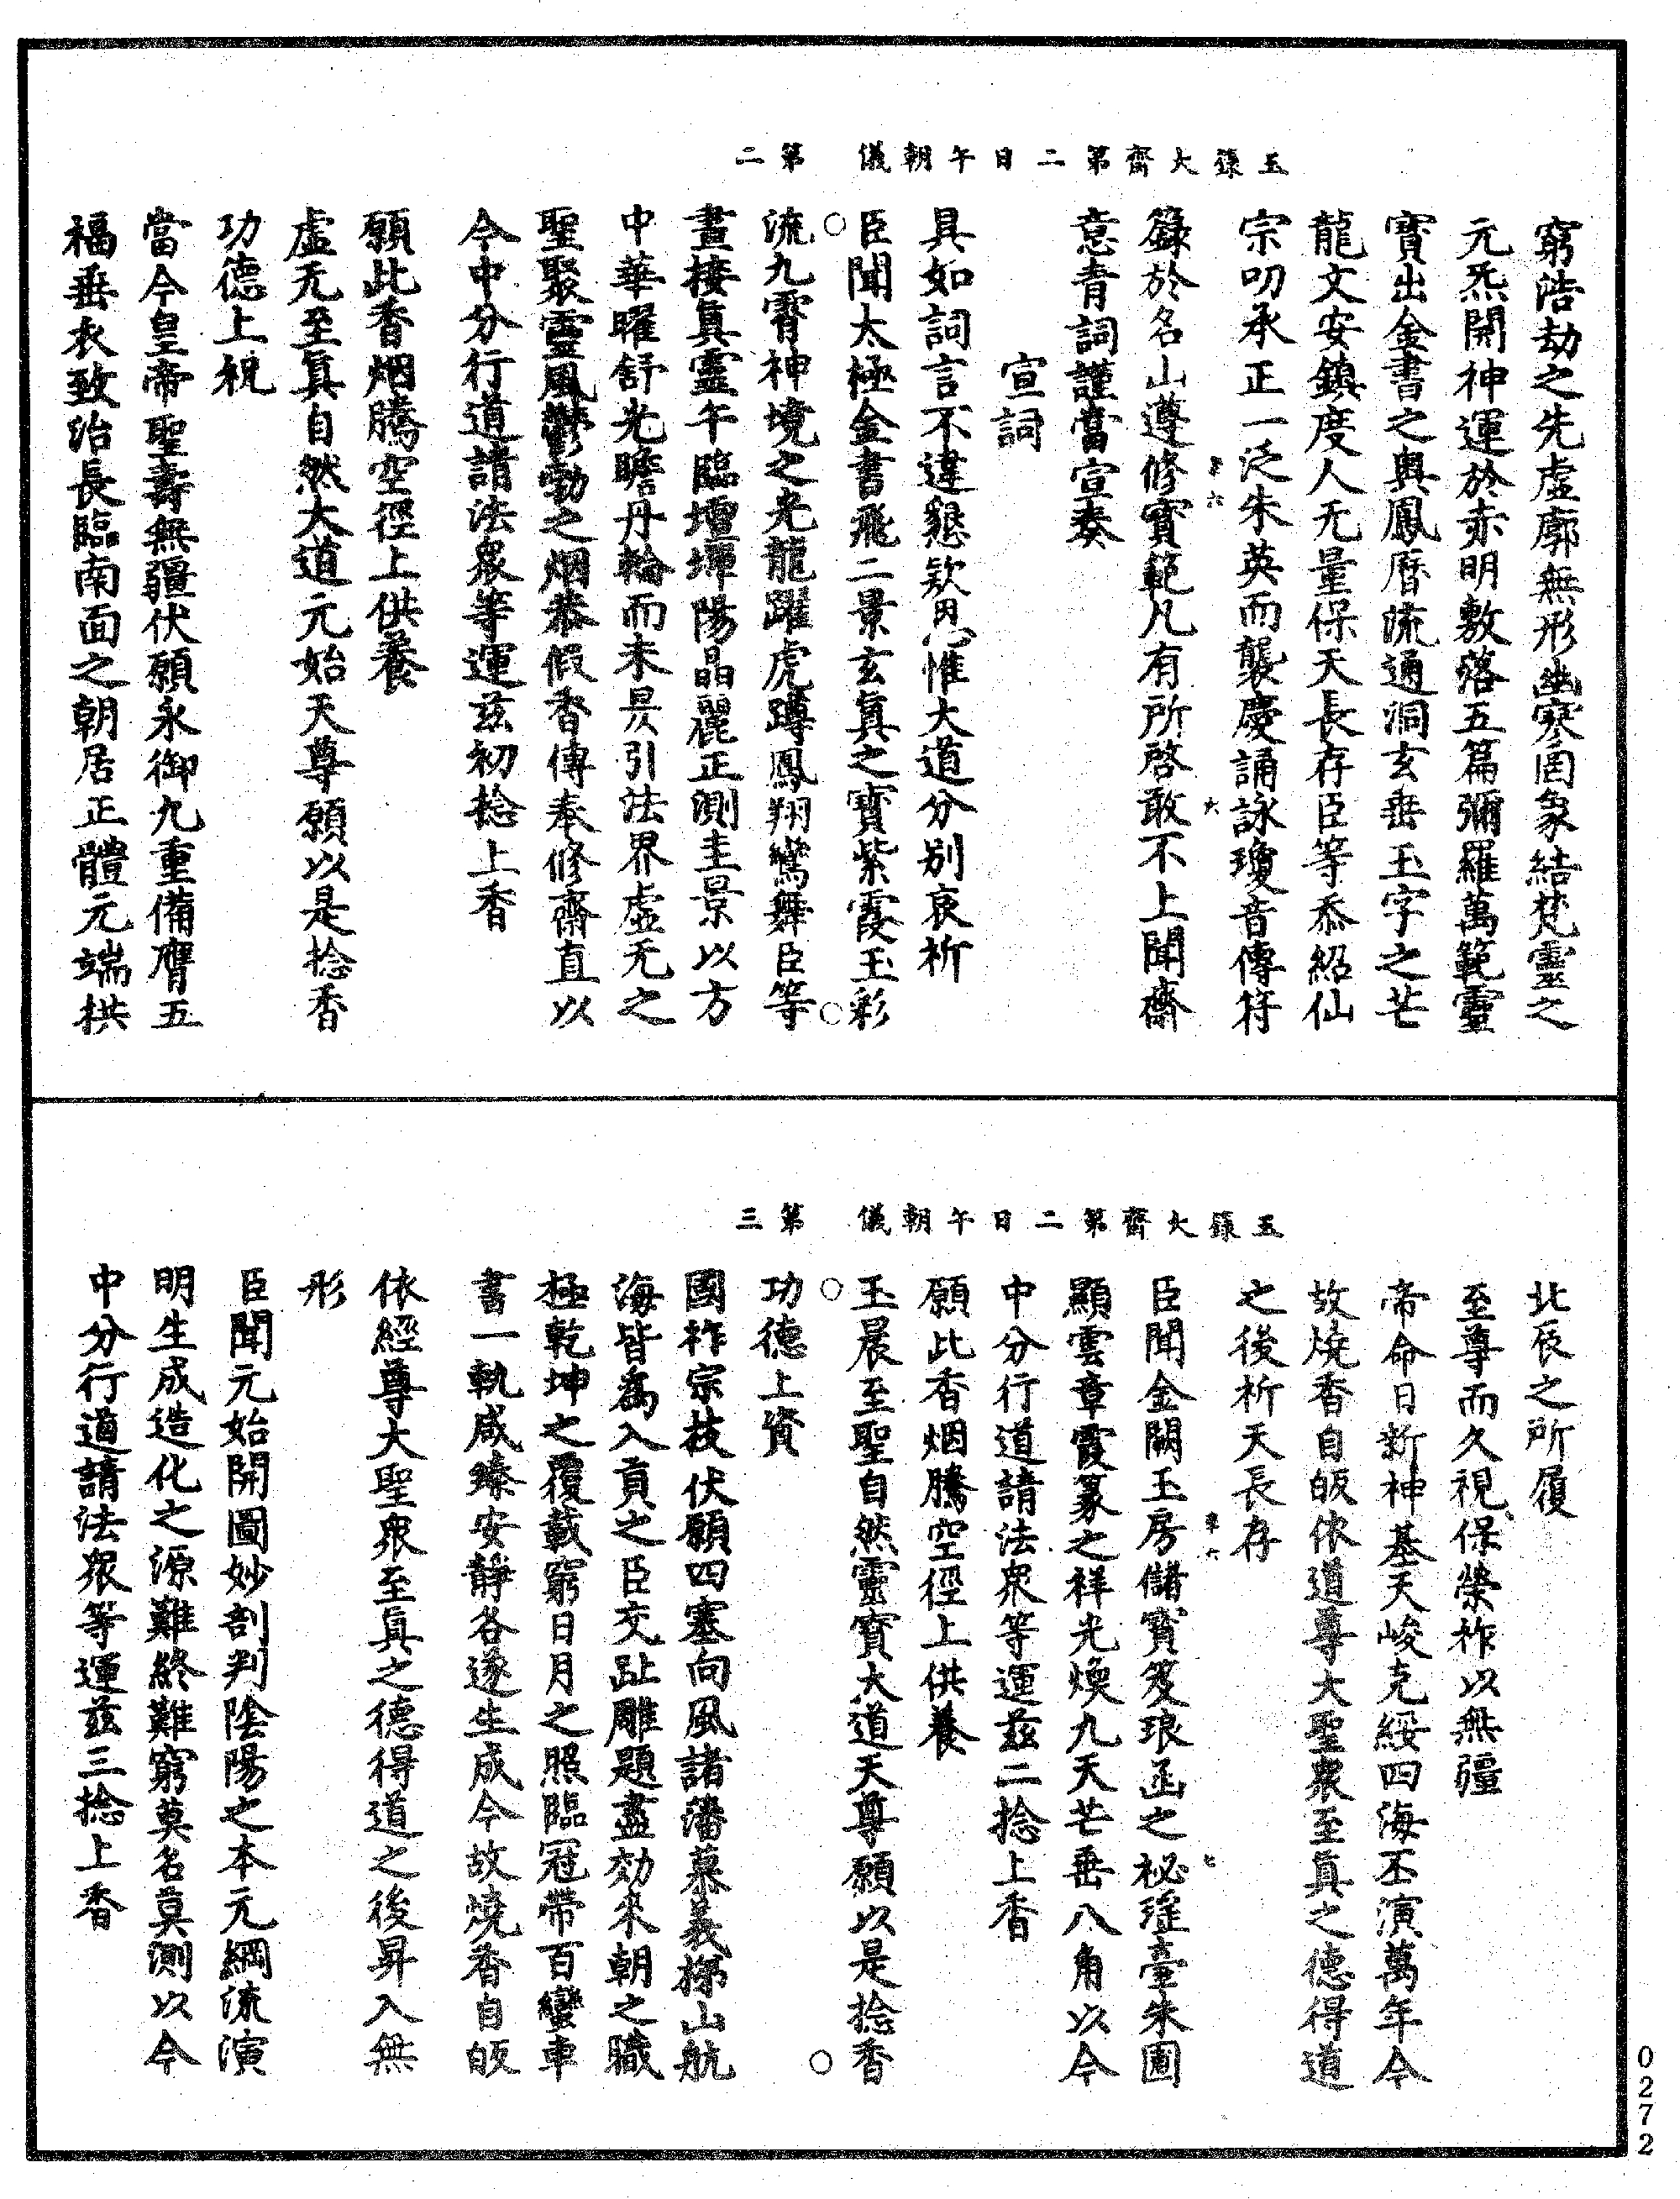 玉籙大齋第二日午朝儀　第二
窮浩劫之先虛廓無形幽寥罔象結梵靈之
元炁開神運於赤明敷落五篇彌羅萬範靈
寶出金書之奧鳳曆流通洞玄垂玉字之芒
龍文安鎮度人无量保天長存臣等忝紹仙
宗叨承正一泛朱英而襲慶誦詠瓊音傳符
籙於名山遵修寶範凡有所啓敢不上聞齋
意青詞謹當宣奏
宣詞
具如詞言不違懇欵恩惟大道分別哀祈
臣聞太極金書飛二景玄真之寶紫霞玉彩
流九霄神境之光龍躍虎蹲鳳翔鸞舞臣等
晝接真靈午臨壇墠陽晶麗正測圭景以方
中華曜舒光瞻丹輪而未昃引法界虛无之
聖聚靈風鬱勃之烟恭假香傳奉修齋直以
今中分行道請法衆等運茲初捻上香
願此香烟騰空徑上供養
虛无至真自然大道元始天尊願以是捻香
功德上祝
當今皇帝聖壽無疆伏願永御九重備膺五
福垂衣致治長臨南面之朝居正體元端拱
玉籙大齋第二日午朝儀　第三
北辰之所履
至尊而久視保榮祚以無疆
帝命日新神基天峻克綏四海丕演萬年今
故燒香自皈依道尊大聖衆至真之德得道
之後祈天長存
臣聞金闕玉房儲寶笈琅函之祕瑤臺朱圃
顯雲章霞篆之祥光煥九天芒垂八角以今
中分行道請法衆等運茲二捻上香
願此香烟騰空徑上供養
玉晨至聖自然靈寶大道天尊願以是捻香
功德上資
國祚宗枝伏願四塞向風諸藩慕義梯山航
海皆爲入貢之臣交趾雕題盡効來朝之職
極乾坤之覆載窮日月之照臨冠帶百蠻車
書一軌咸臻安靜各遂生成今故燒香自皈
依經尊大聖衆至真之德得道之後昇入無
形
臣聞元始開圖妙剖判陰陽之本元綱流演
明生成造化之源難終難窮莫名莫測以今
中分行道請法衆等運茲三捻上香
0272